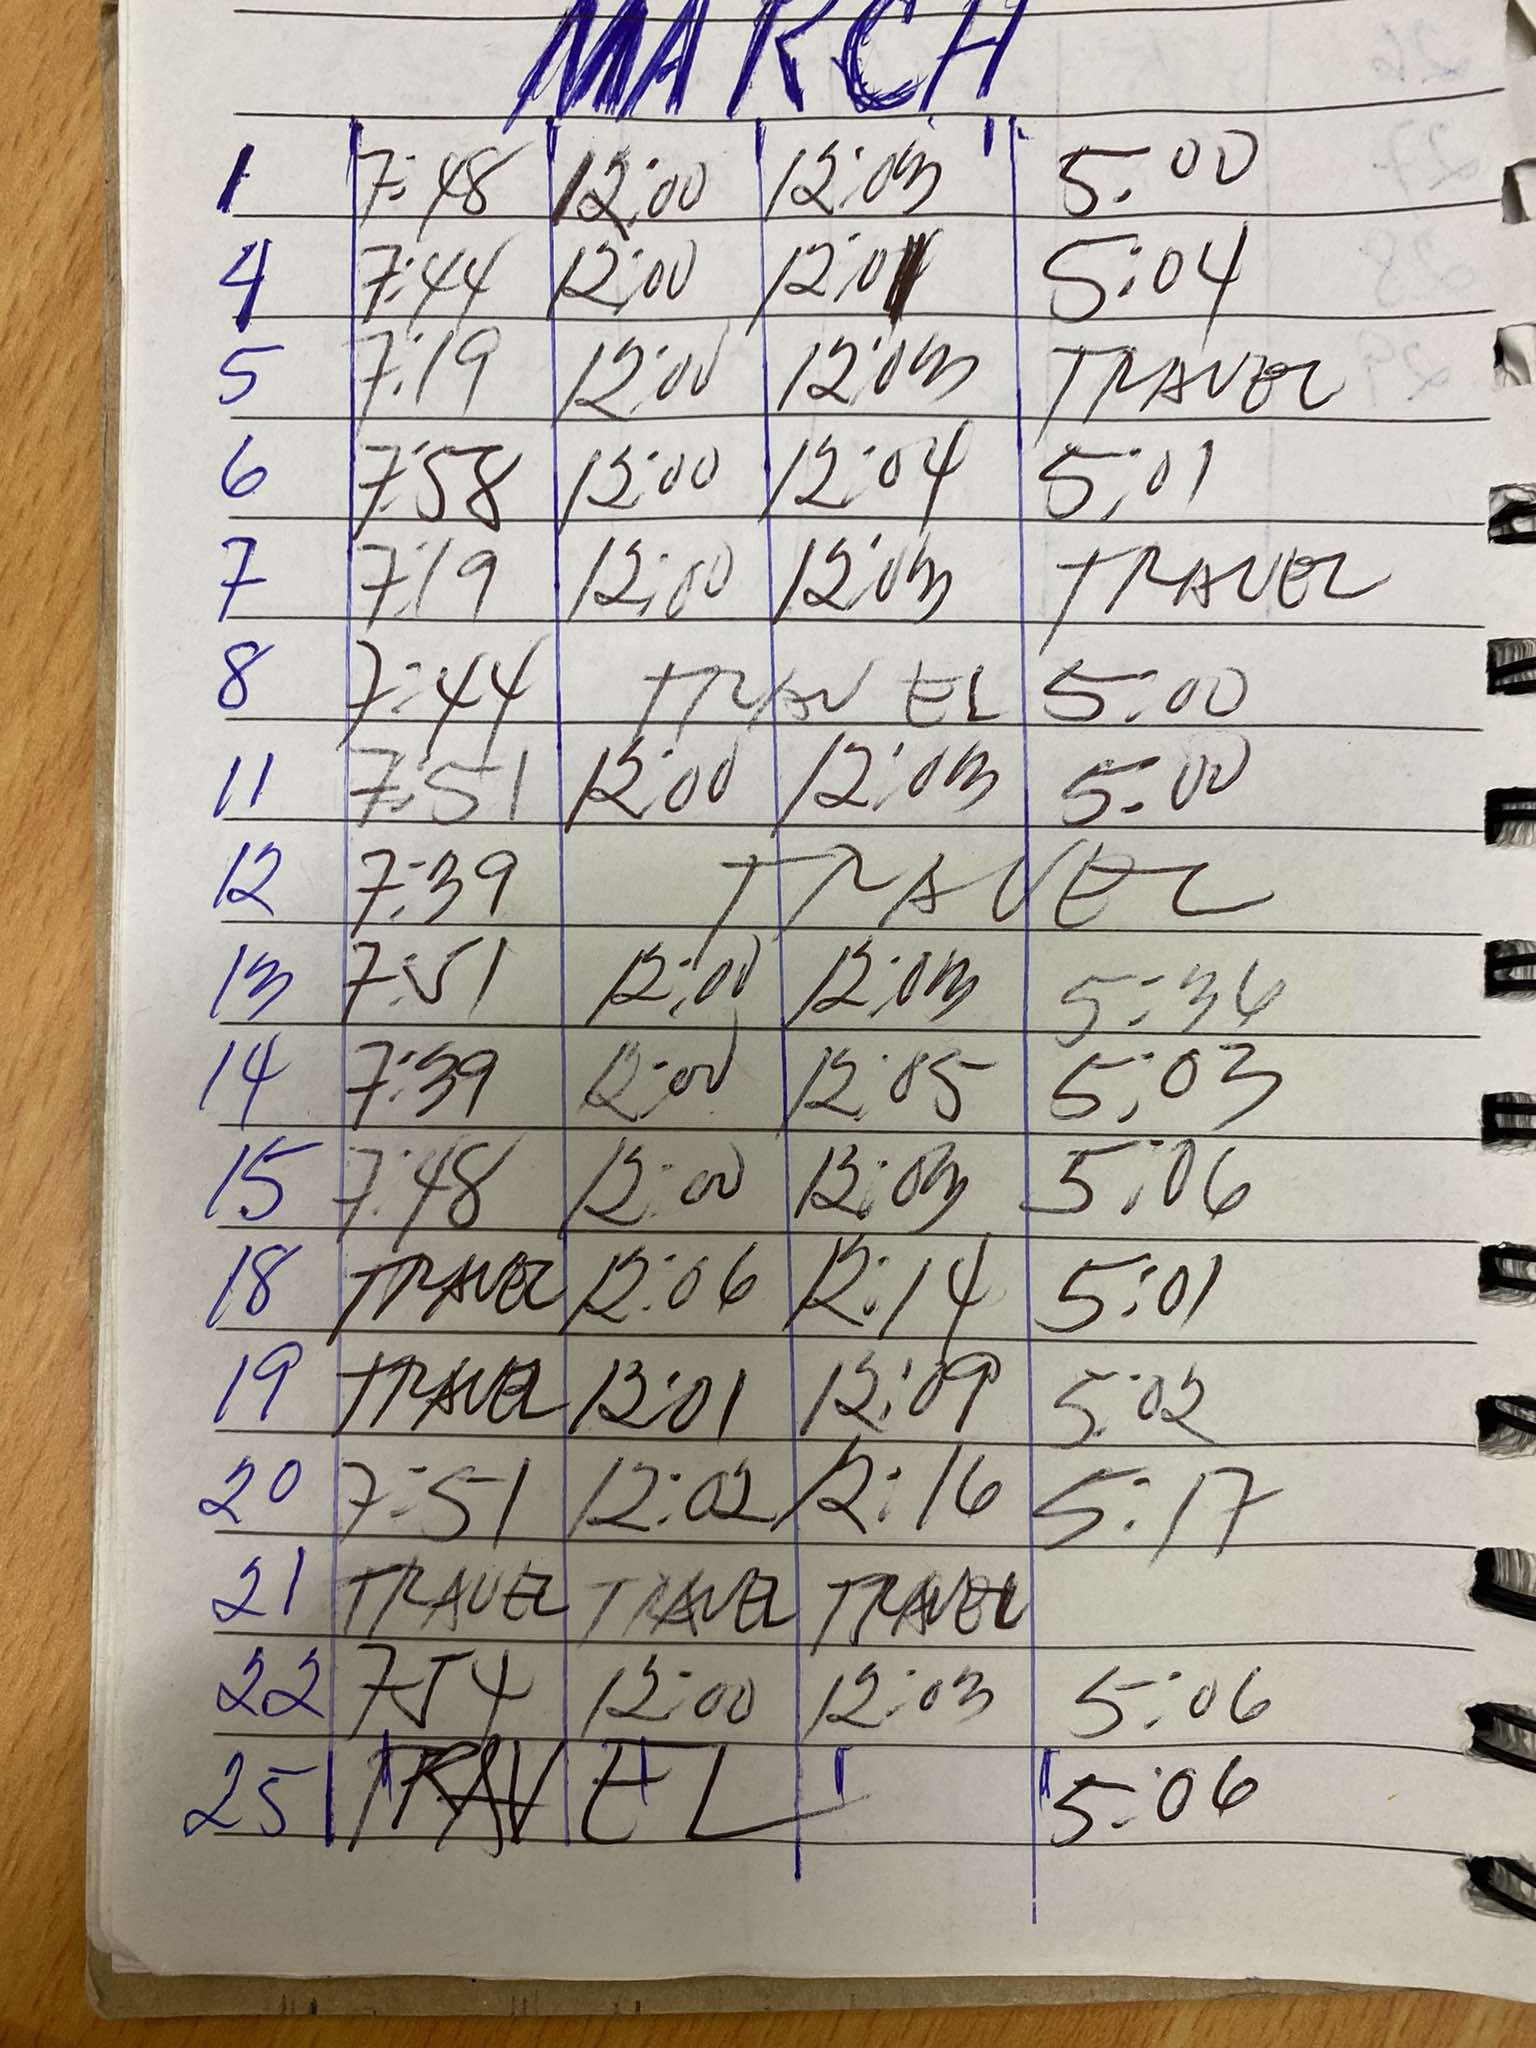 MARCH
1 7:48 12:00 12:03 5:00
4 7:44 12:00 12:01 5:04
5 7:19 12:00 12:03 TRAVEL
6 7:58 12:00 12:04 5:01
7 7:19 12:00 12:03 TRAVEL
8 7:44 TRAVEL 5:00
11 7:51 12:00 12:03 5:00
12 7:39 TRAVEL
13 7:51 12:00 12:03 5:36
14 7:39 12:00 12:05 5:03
15 7:48 12:00 12:03 5:06
18 TRAVEL 12:06 12:14 5:01
19 TRAVEL 12:01 12:09 5:02
20 7:51 12:02 12:16 5:17
21 TRAVEL TRAVEL TRAVEL
22 7:54 12:00 12:03 5:06
25 TRAVEL 5:06